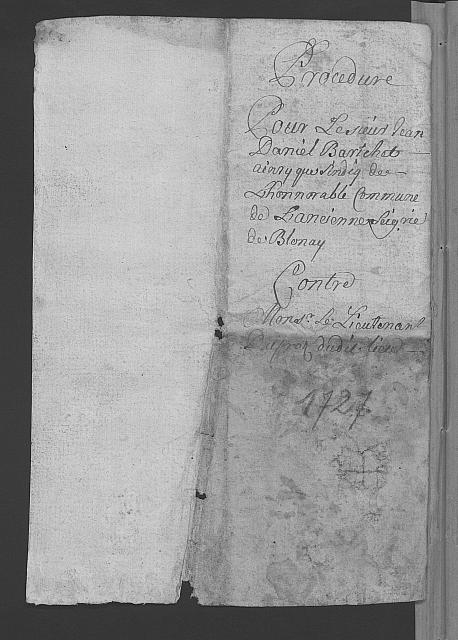 Procedure
Pour Le sieur Jean
Daniel Bartchet
ainsy que sindiq de
L'honnorable Commune
de L'ancienne Seig.rie
de Blonay
Contre
Mons.r Le Lieutenant
Dupraz dudit Lieu
1727